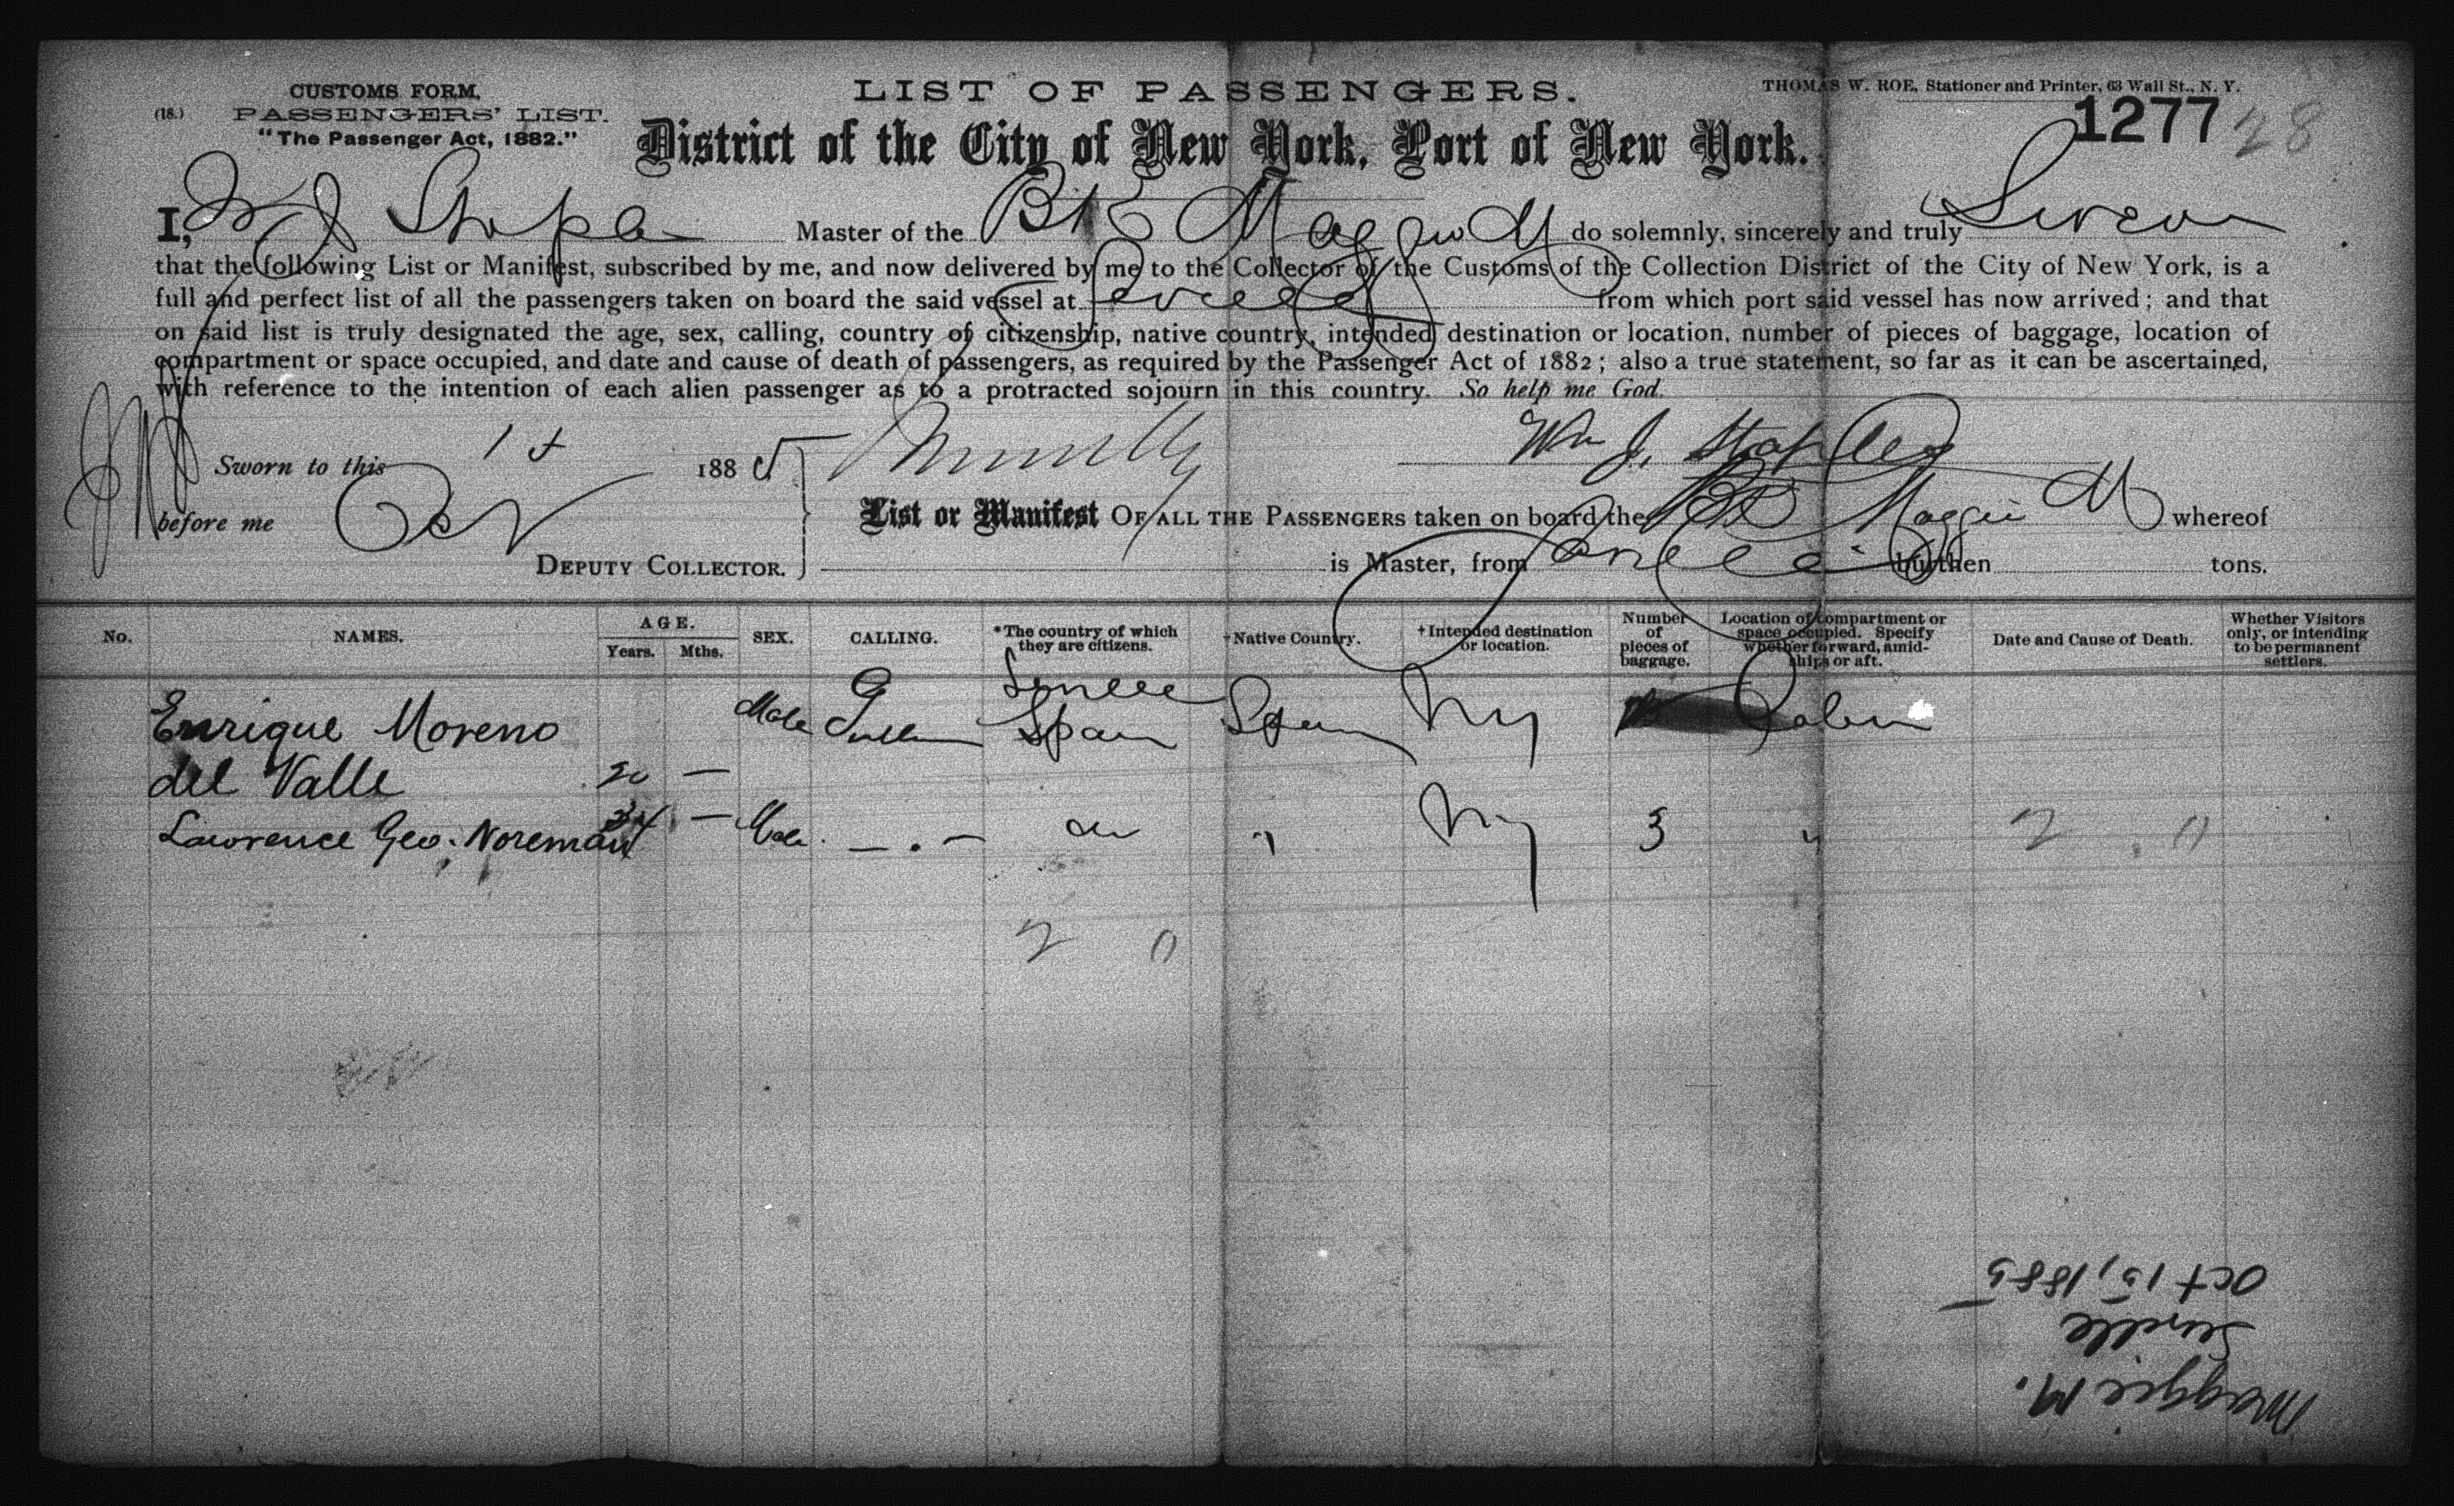 CUSTOMS FORM.
(18.) PASSENGERS' LIST.
"The Passenger Act, 1882."
LIST OF PASSENGERS.
District of the City of New York, Port of New York.
THOMAS W. ROE, Stationer and Printer, 63 Wall St., N. Y.
1277
28
I, W J Staple Master of the Bk Maggie M do solemnly, sincerely and truly Swear
that the following List or Manifest, subscribed by me, and now delivered by me to the Collector of the Customs of the Collection District of the City of New York, is a
full and perfect list of all the passengers taken on board the said vessel at Seville from which port said vessel has now arrived; and that
on said list is truly designated the age, sex, calling, country of citizenship, native country, intended destination or location, number of pieces of baggage, location of
compartment or space occupied, and date and cause of death of passengers, as required by the Passenger Act of 1882; also a true statement, so far as it can be ascertained,
with reference to the intention of each alien passenger as to a protracted sojourn in this country. So help me God.
Wm J. Staples
Sworn to this 15 1885
before me Oct
DEPUTY COLLECTOR.
List or Manifest OF ALL THE PASSENGERS taken on board the Bk Maggie M whereof
is Master, from Seville burthen tons.
No. NAMES. AGE. Years. Mths. SEX. CALLING. *The country of which they are citizens. †Native Country. †Intended destination or location. Number of pieces of baggage. Location of compartment or space occupied. Specify whether forward, amidships or aft. Date and Cause of Death. Whether Visitors only, or intending to be permanent settlers.
Seville
Enrique Moreno Male Spain Spain NY Cabin
del Valle 20 —
Lawrence Geo. Noreman 34 — Male — . — do " NY 3 " 2 0
2 0
Oct 15, 1885
Seville
Maggie M.